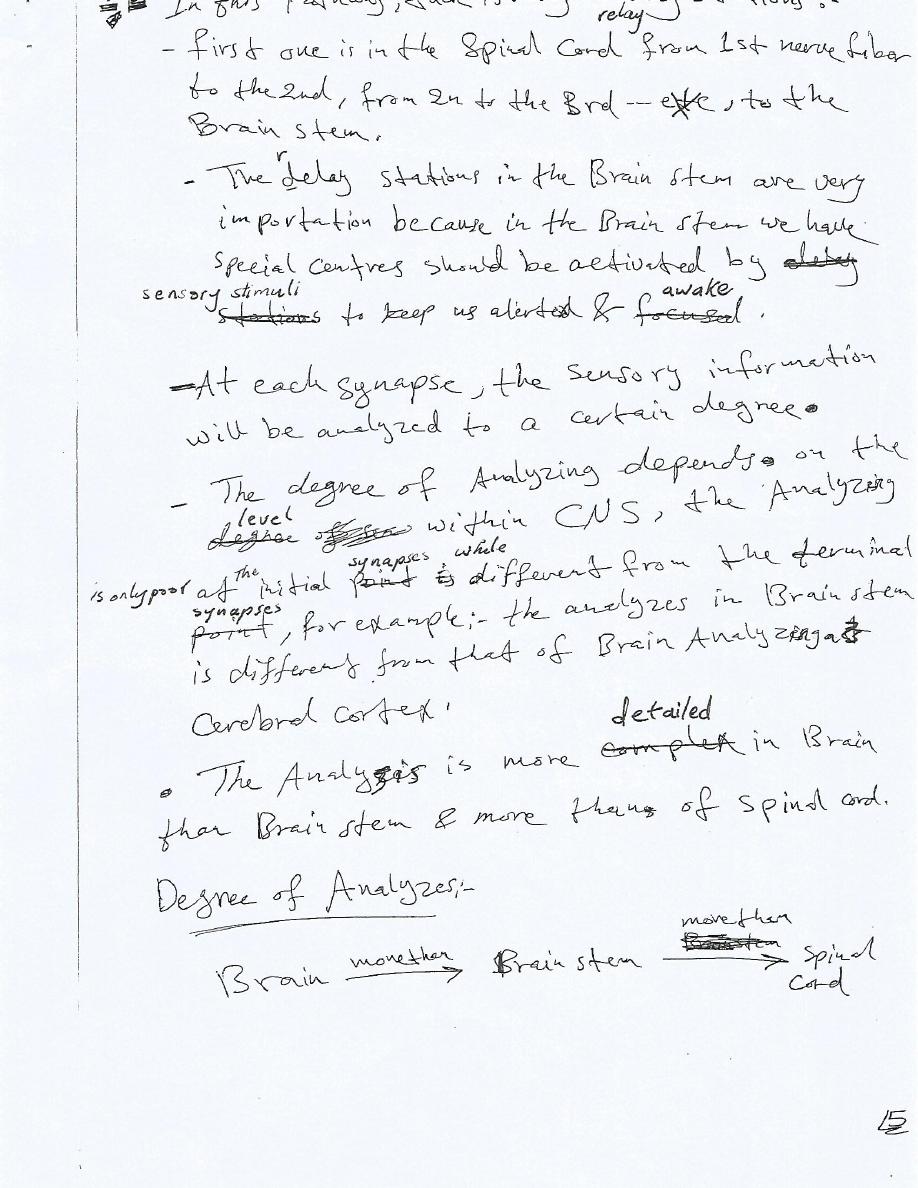 In this
relay
- first one is in the Spinal Cord from 1st nerve fiber
to the 2nd, from 2n to the 3rd -- etc, to the
Brain stem.
- The relay stations in the Brain stem are very
importation because in the Brain stem we have
special centres should be activated by delay
sensory stimuli awake
stations to keep us alerted & focused.
- At each synapse, the sensory information
will be analyzed to a certain degree.
- The degree of Analyzing depends on the
level
degree of within CNS, the Analyzing
synapses while
is only poor at the initial point is different from the terminal
synapses
point, for example;- the analyzes in Brain stem
is different from that of Brain Analyzing at
Cerebral cortex.
detailed
• The Analysis is more complex in Brain
than Brain stem & more than of spinal cord.
Degree of Analyzes;-
more than
Brain more than Brain stem Brain stem Spinal
Cord
15